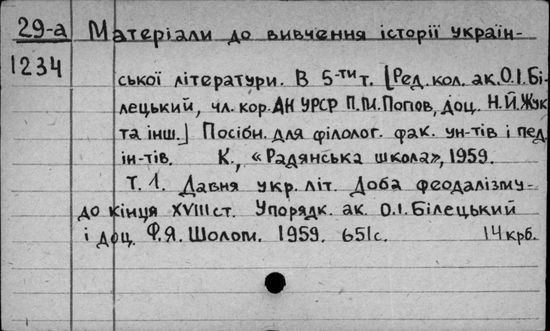 29-а Матеріали до вивчення історії україн-
1234
ської літератури. В 5-ти т. [Ред. кол. ак. О.І. Бі-
лецький, чл. кор. АН УРСР П.М. Попов, доц. Н.Й. Жук
та інш.] Посібн. для філолог. фак. ун-тів і пед.
ін-тів. К., «Радянська школа», 1959.
Т. 1. Давня укр. літ. Доба феодалізму-
до кінця XVIII ст. Упорядк. ак. О.І. Білецький
і доц. Ф.Я. Шолом. 1959. 651с. 14 крб.